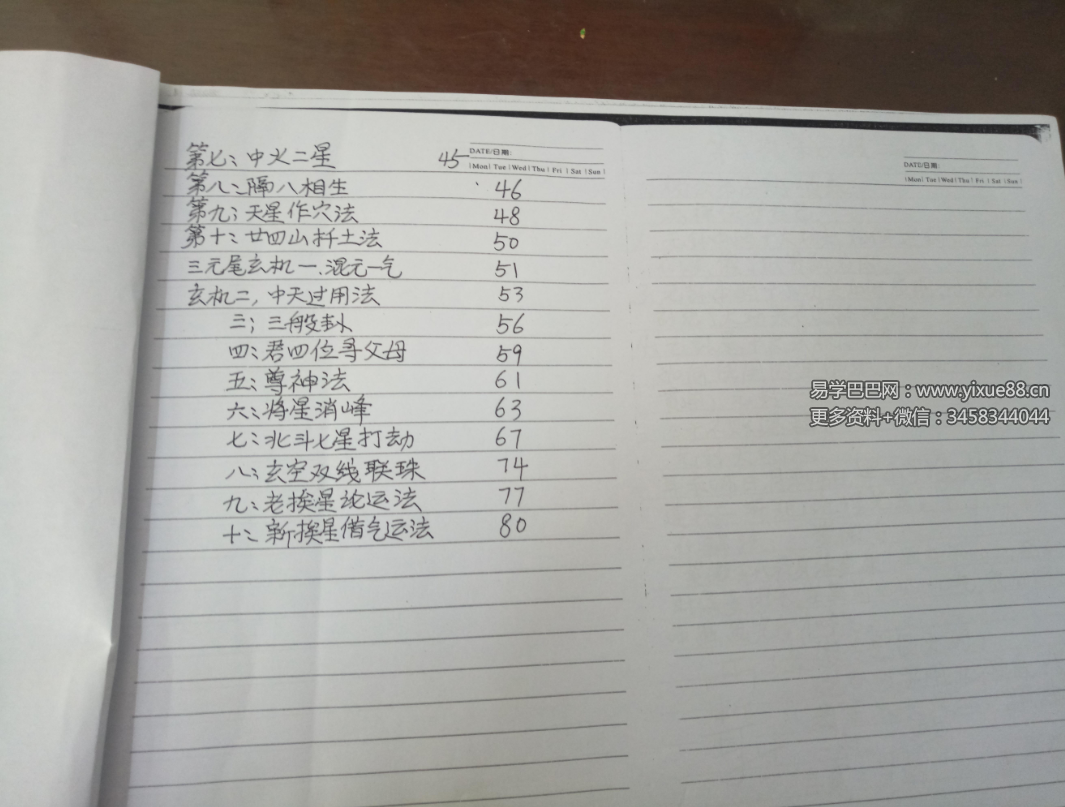 第七：中火二星 45
第八：隔八相生 46
第九：天星作穴法 48
第十：廿四山扦土法 50
三元尾玄机一、混元一气 51
玄机二，中天过用法 53
三；三般卦 56
四：君四位寻父母 59
五：尊神法 61
六：将星消峰 63
七：北斗七星打劫 67
八：玄空双线联珠 74
九：老挨星论运法 77
十：新挨星借气运法 80
DATE/日期:
Mon | Tue | Wed | Thu | Fri | Sat | Sun
DATE/日期:
Mon | Tue | Wed | Thu | Fri | Sat | Sun
易学巴巴网：www.yixue88.cn
更多资料+微信：3458344044